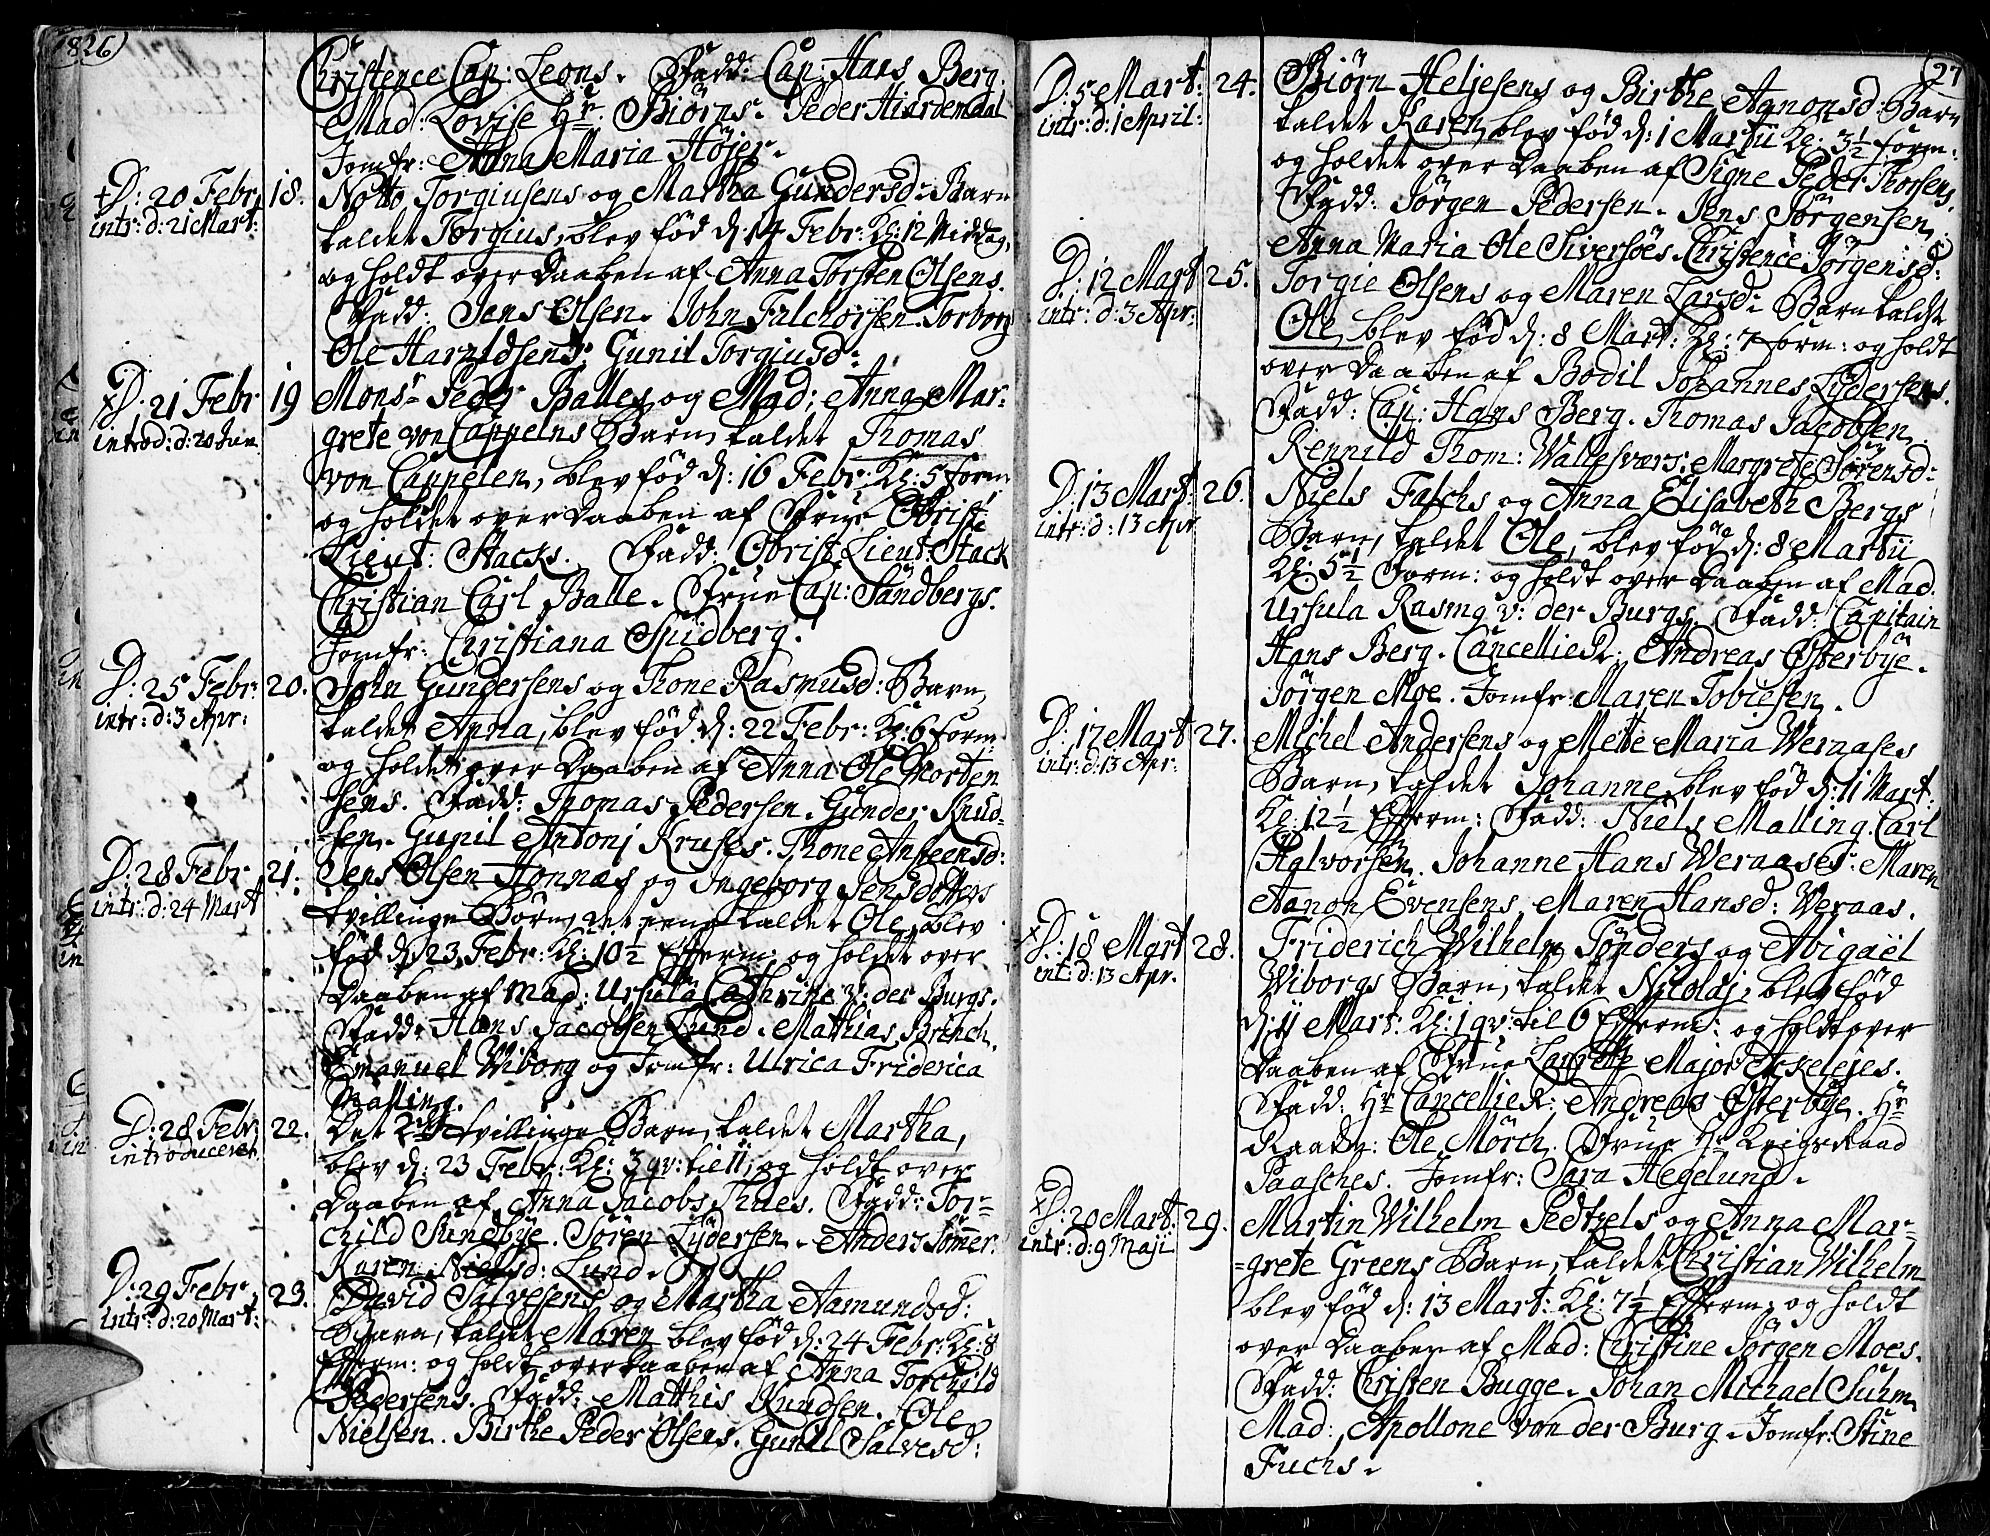 1826)
Christence Cap: Leons. Fadd: Cap: Hans Berg.
Mad: Lovise Hr. Biörns. Peder Hiardemdal
Jomfr: Anna Maria Höjer.
+D: 20 Febr. 18. Notto Torgiusens og Martha Gundersd: Barn
intr: d: 21 Mart: kaldet Torgius, blev född d: 14 Febr: Kl: 12 Middag,
og holdt over Daaben af Anna Torsten Olsens.
Fadd: Jens Olsen. John Falchorsen. Torborg
Ole Haraldsens. Gunil Torgiusd:
D: 21 Febr 19 Monsr Peder Balles og Mad: Anna Mar-
introd: d: 20 Jun. grete von Cappelns Barn, kaldet Thomas
von Cappelen, blev född d: 16 Febr: Kl: 5 form.
og holdet over Daaben af Frue Obrist
Lieut: Stacks. Fadd: Obrist Lieut: Stack
Christian Carl Balle. Frue Cap: Sandbergs.
Jomfr: Christiana Spidberg.
D: 25 Febr: 20. John Gundersens og Thone Rasmusd: Barn,
intr: d: 3 Apr: kaldet Anna, blev född d: 22 Febr: Kl: 6 form:
og holdet over Daaben af Anna Ole Morten
sens. Fadd: Thomas Pedersen. Gunder Knud-
-sen. Gunil Antonj Kruses. Thone Ansteensd:
D: 28 Febr 21. Jens Olsen Honnas og Ingeborg Jensdotters
intr: d: 24 Mart tvillinge Børn, det eene kaldet Ole, blev
född d 23 Febr: Kl: 10½ Efterm: og holdet over
Daaben af Mad: Ursula Cathrine v: der Burgs.
Fadd: Hans Jacobsen Lund. Mathias Brinch.
Emanuel Wiborg og Jomfr: Ulrica Friderica
Malling.
D: 28 Febr 22. Det 2det tvillinge Barn, kaldet Martha,
introduceret. blev d: 23 Febr: Kl: 3 qv: til 11, og holdt over
Daaben af Anna Jacobs Thues. Fadd: Tor-
child Sundbye. Sören Lydersen. Anders Sömer.
Karen Nielsd: Lund.
D: 29 Febr 23. David Salvesens og Martha Aamundsd:
intr: d: 20 Mart: Barn, kaldet Maren blev född d: 24 Febr: Kl: 8
Efterm: og holdt over Daaben af Anna Torchild
Pedersens. Fadd: Mathis Knudsen. Ole
Nielsen. Birthe Peder Olsens. Gunil Salvesd:
(27
D: 5 Mart: 24. Biörn Heljesens og Birthe Aanonsd: Barn
intr: d: 1 April: kaldet Karen, blev född d: 1 Martii Kl: 3½ form:
og holdet over Daaben af Signe Peder Thorsens.
Fadd: Jörgen Pedersen. Jens Jörgensen.
Anna Maria Ole Siversöes. Christence Jörgensd:
D: 12 Mart 25. Torgie Olsens og Maren Larsd: Barn kaldt
intr: d: 3 Apr: Ole, blev född d: 8 Mart: Kl: 7 form: og holdt
over Daaben af Bodil Johannes Lydersens.
Fadd: Cap: Hans Berg. Thomas Jacobsen.
Rennild Thom: Wallesværs. Margrete Sörensd:
D: 13 Mart: 26. Niels Falchs og Anna Elisabeth Bergs
intr: d: 13 Apr. Barn, kaldet Ole, blev född d: 8 Martii
Kl: 5½ Form: og holdt over Daaben af Mad.
Ursula Rasmq v: der Burgs. Fadd: Capitain
Hans Berg. CancellieR. Andreas Østerbye.
Jörgen Moe. Jomfr: Maren Tobiesen.
D: 17 Mart 27. Michel Andersens og Mette Maria Weraases
intr: d: 13 Apr: Barn, kaldet Johanne, blev född d: 11 Mart:
Kl: 12½ Efterm: Fadd: Niels Malling. Carl
Halvorsen. Johanne Hans Weraases. Maren
Aanon Evensens. Maren Hansd: Weraas.
D: 18 Mart 28. Friderich Wilhelm Tönders og Abigaël
int: d: 13 Apr. Wiborgs Barn, kaldet Nicolaj, blev född
d: 11 Mart: Kl: 1 qv: til 6 Efterm: og holdt over
Daaben af Frue Laurette Major Ackelejes.
Fadd: Hr CancellieR: Andreas Østerbye. Hr
Raadm: Ole Mörch. Frue Hr KrigsRaad
Paasches. Jomfr: Sara Hegelund.
D: 20 Mart. 29. Martin Wilhelm Pedtzels og Anna Mar-
intr: d: 9 Maji -grete Greens Barn, kaldet Christian Wilhelm
blev född d: 13 Mart: Kl: 7½ Efterm: og holdt
over Daaben af Mad: Christine Jörgen Moes.
Fadd: Christen Bugge. Johan Michael Suhm
Mad: Apollone von der Burg. Jomfr: Stine
Fuchs.